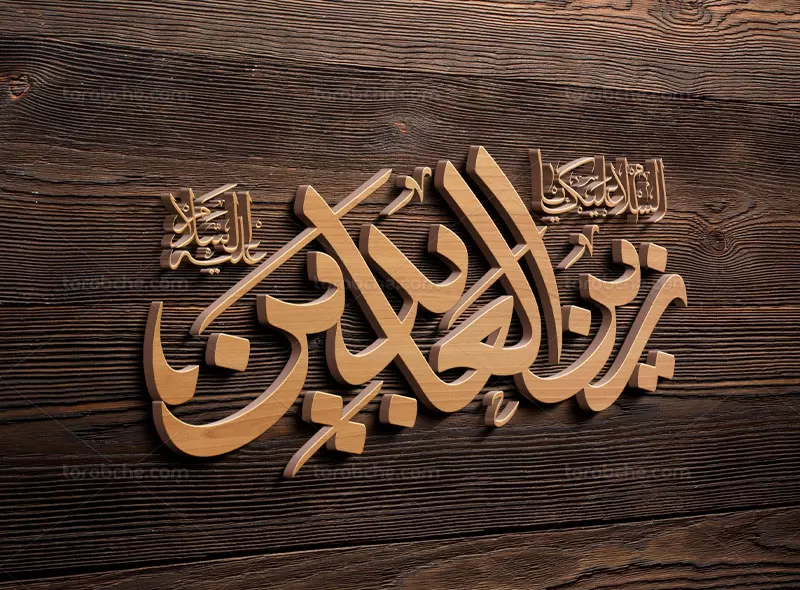 السلام علیک یا
زین العابدین
علیه السلام
torobche.com torobche.com torobche.com
torobche.com torobche.com torobche.com
torobche.com torobche.com torobche.com